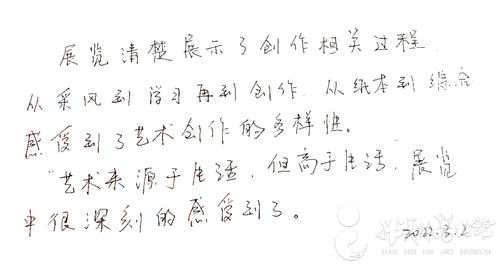 展览清楚展示了创作相关过程.
从采风到学习再到创作. 从纸本到综合
感受到了艺术创作的多样性。
"艺术来源于生活, 但高于生活. 展览
中很深刻的感受到了。
2022.3.2
韩美林艺术馆
HAN MEI LIN ART MUSEUM